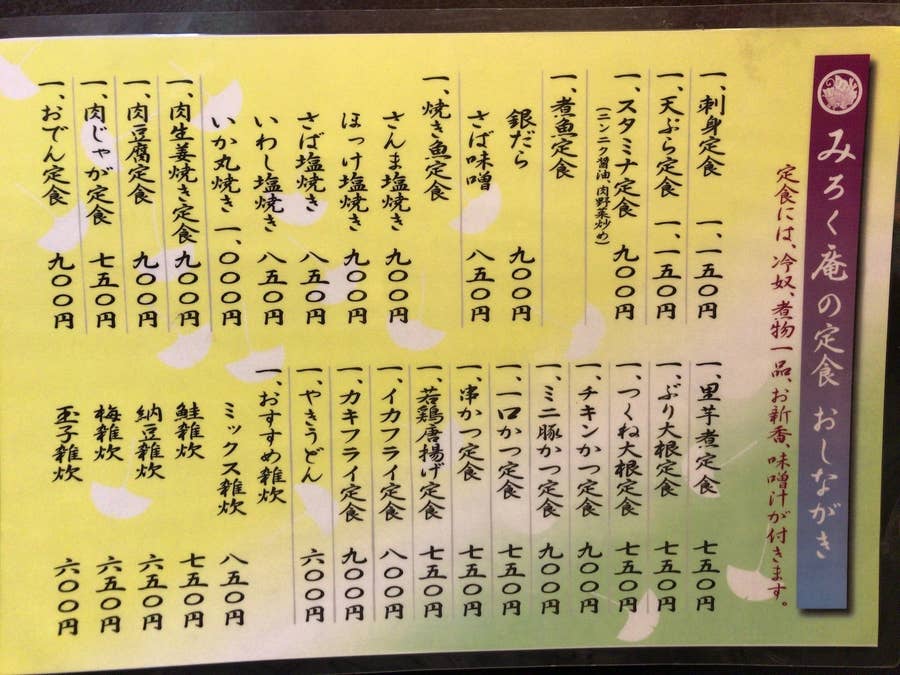 みろく庵の定食 おしながき
定食には、冷奴、煮物一品、お新香、味噌汁が付きます。
一、刺身定食 一、一五〇円
一、天ぷら定食 一、一五〇円
一、スタミナ定食 九〇〇円
(ニンニク醤油、肉野菜炒め)
一、煮魚定食
銀だら 九〇〇円
さば味噌 八五〇円
一、焼き魚定食
さんま塩焼き 九〇〇円
ほっけ塩焼き 九〇〇円
さば塩焼き 八五〇円
いわし塩焼き 八五〇円
いか丸焼き 一、〇〇〇円
一、肉生姜焼き定食 九〇〇円
一、肉豆腐定食 九〇〇円
一、肉じゃが定食 七五〇円
一、おでん定食 九〇〇円
一、里芋煮定食 七五〇円
一、ぶり大根定食 七五〇円
一、つくね大根定食 七五〇円
一、チキンかつ定食 九〇〇円
一、ミニ豚かつ定食 九〇〇円
一、一口かつ定食 七五〇円
一、串かつ定食 七五〇円
一、若鶏唐揚げ定食 七五〇円
一、イカフライ定食 八〇〇円
一、カキフライ定食 九〇〇円
一、やきうどん 六〇〇円
一、おすすめ雑炊
ミックス雑炊 八五〇円
鮭雑炊 七五〇円
納豆雑炊 六五〇円
梅雑炊 六五〇円
玉子雑炊 六〇〇円